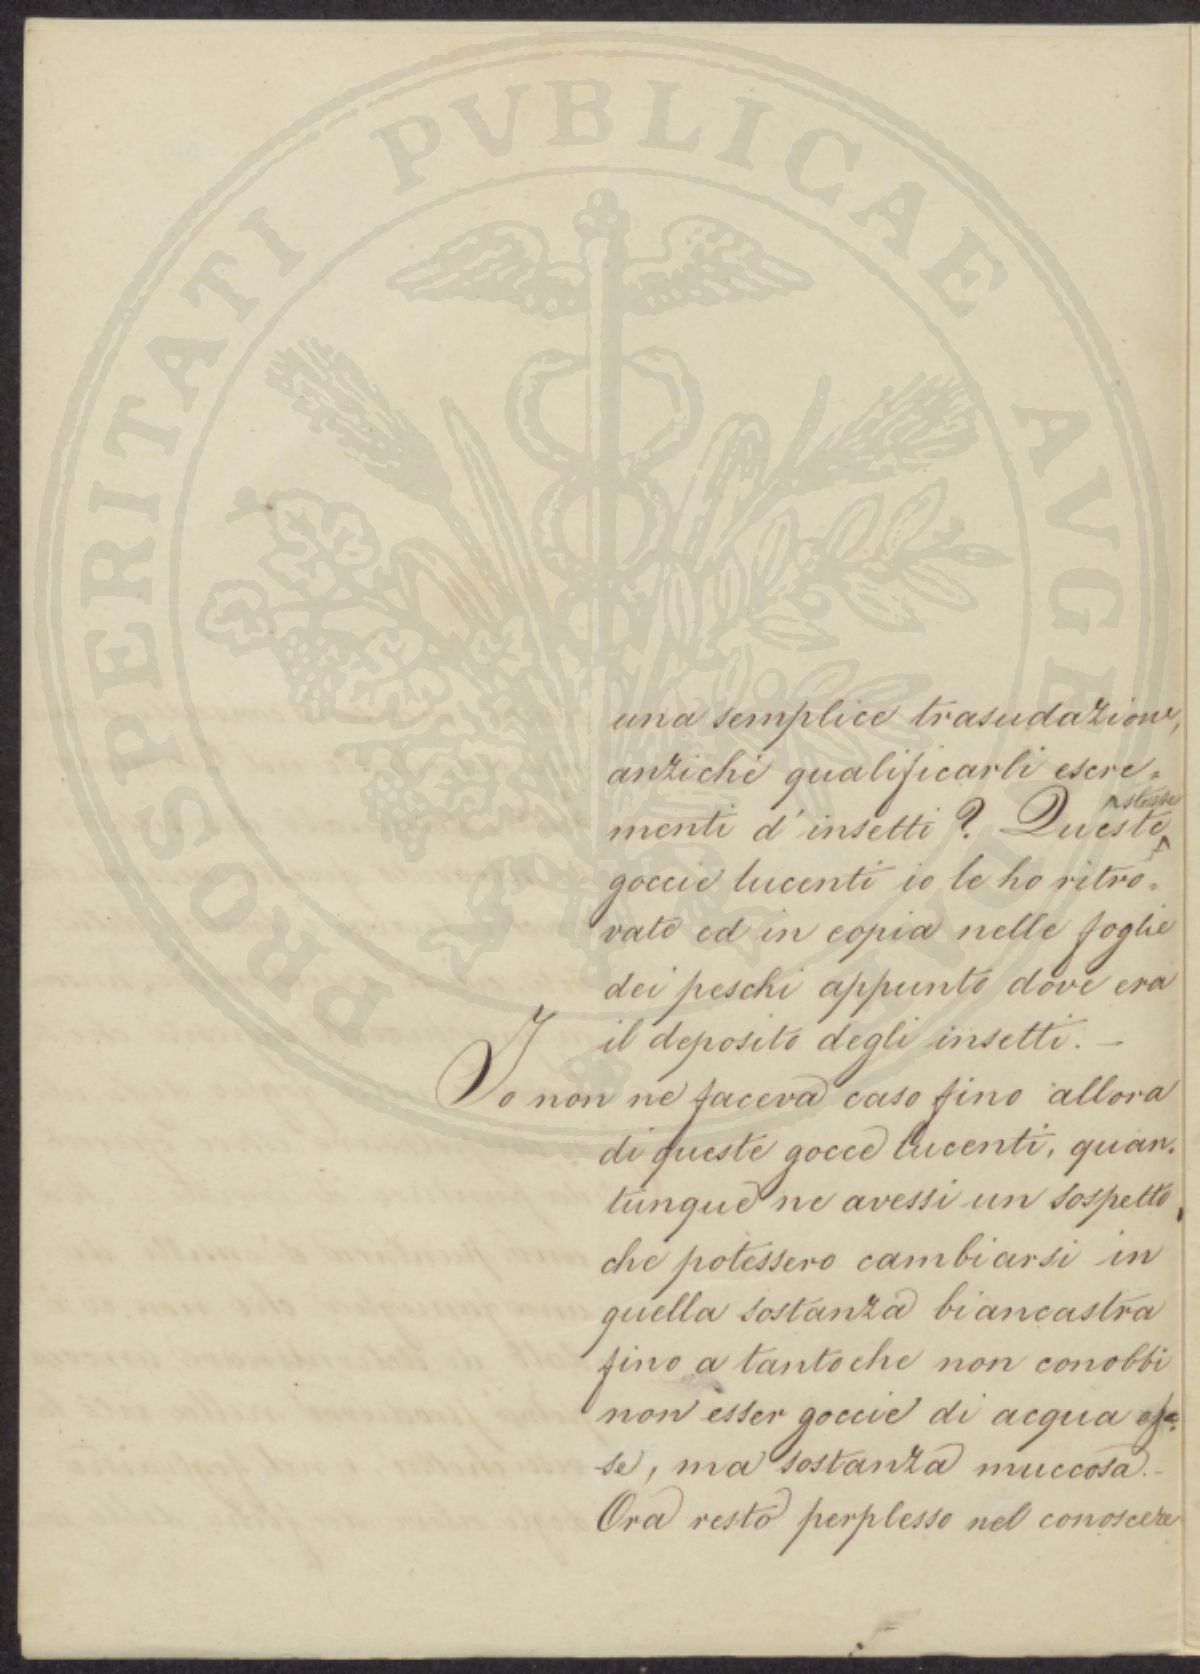 PROSPERITATI PVBLICAE AVGENDAE
una semplice trasudazione,
anziché qualificarli escre-
menti d'insetti? Queste stesse
goccie lucenti io le ho ritro-
vate ed in copia nelle foglie
dei peschi appunto dove era
il deposito degli insetti. —
Io non ne faceva caso fino allora
di queste gocce lucenti, quan-
tunque ne avessi un sospetto
che potessero cambiarsi in
quella sostanza biancastra
fino a tanto che non conobbi
non esser goccie di acqua
se, ma sostanza muccosa. -
Ora resto perplesso nel conoscere